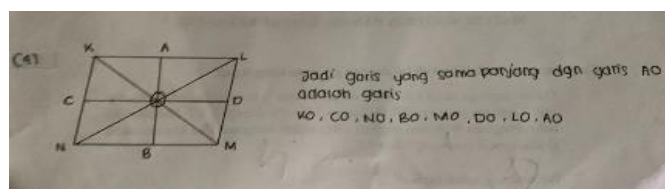 (4)
K A L
C O D
N B M
Jadi garis yang sama panjang dgn garis AO
adalah garis
KO, CO, NO, BO, MO, DO, LO, AO